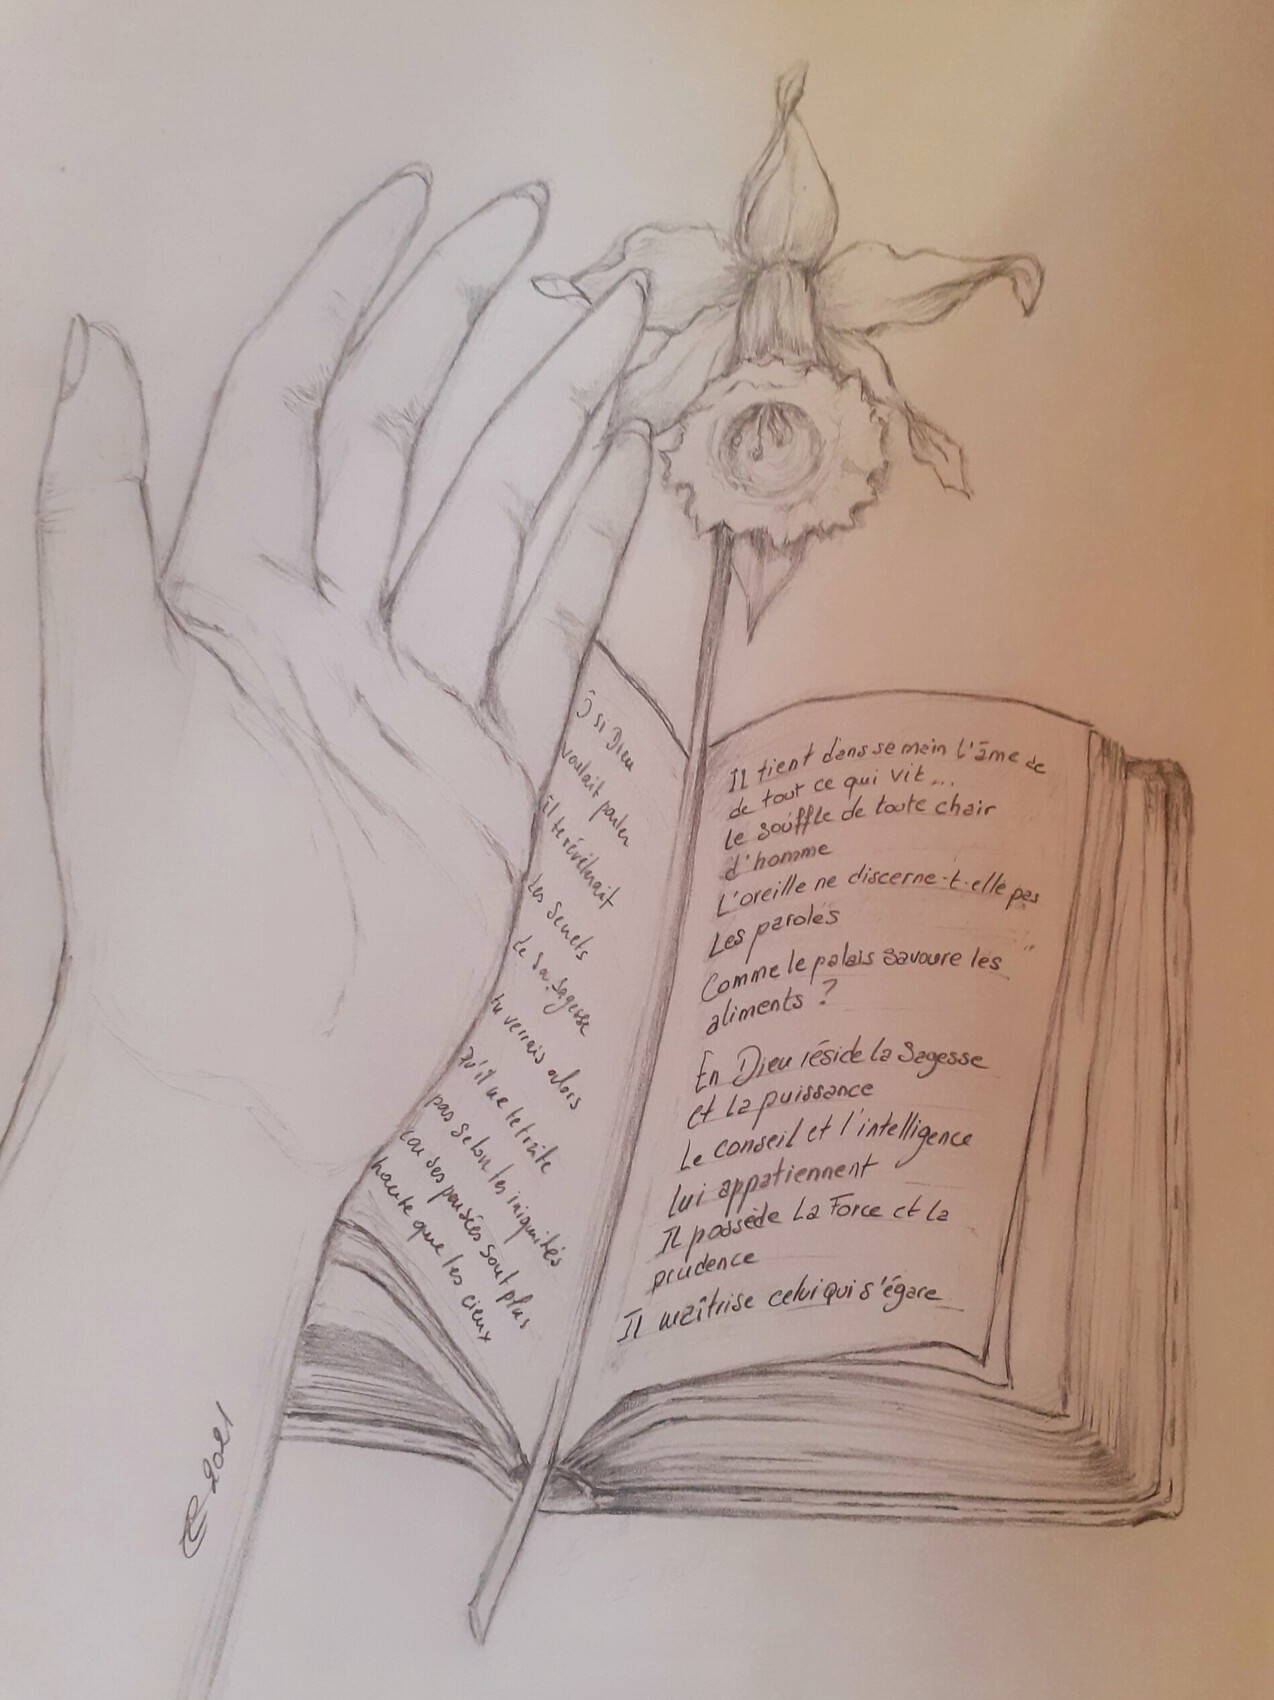 Ô si Dieu
voulait parler
il te révélerait
les secrets
de sa Sagesse
tu verrais alors
qu'il ne te traite
pas selon tes iniquités
car ses pensées sont plus
haute que les cieux
Il tient dans se main l'âme de
de tout ce qui vit...
Le souffle de toute chair
d'homme
L'oreille ne discerne-t-elle pas
Les paroles
Comme le palais savoure les
aliments ?
En Dieu réside la Sagesse
et la puissance
Le conseil et l'intelligence
lui appatiennent
Il possède La Force et la
prudence
Il maîtrise celui qui s'égare
2021